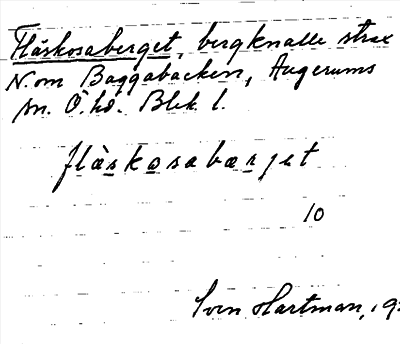 Fläskosaberget, bergknalle strax
N. om Baggabacken, Augerums
sn. Ö. hd. Blek. l.
fläskosabærjet
10
Sven Hartman, 19